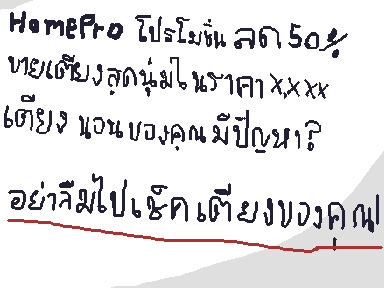 HomePro โปรโมชั่น ลด 50%
ขายเตียงสุดนุ่มในราคา x,xxx
เตียงนอนของคุณมีปัญหา?
อย่าลืมไปเช็คเตียงของคุณ!